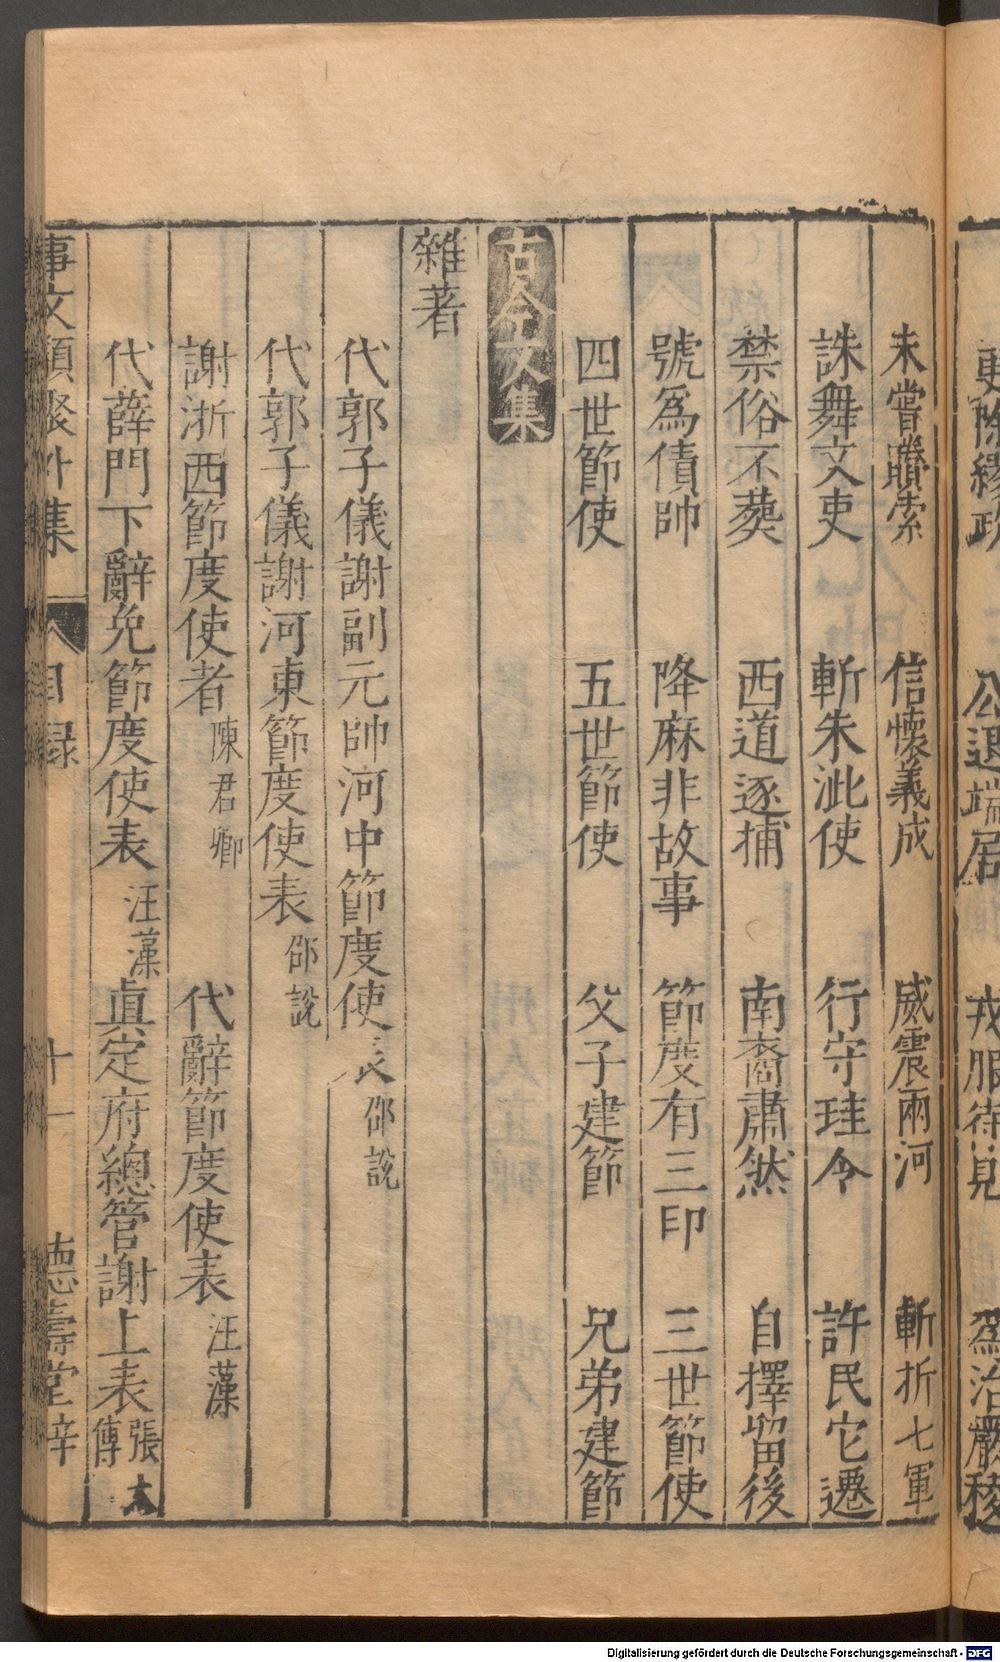 更除繆政　公退端居　戎服待見　爲治嚴稜
未嘗購索　信懷義成　威震兩河　斬折七軍
誅舞文吏　斬朱泚使　行守珪令　許民它遷
禁俗不葬　西道逐捕　南裔肅然　自擇留後
號爲債帥　降麻非故事　節度有三印　三世節使
四世節使　五世節使　父子建節　兄弟建節
古今文集
雜著
代郭子儀謝副元帥河中節度使表 邵說
代郭子儀謝河東節度使表 邵說
謝浙西節度使者 陳君卿　代辭節度使表 汪藻
代薛門下辭免節度使表 汪藻　眞定府總管謝上表 張 傳
事文類聚外集　目録　十一　德壽堂梓
Digitalisierung gefördert durch die Deutsche Forschungsgemeinschaft - DFG